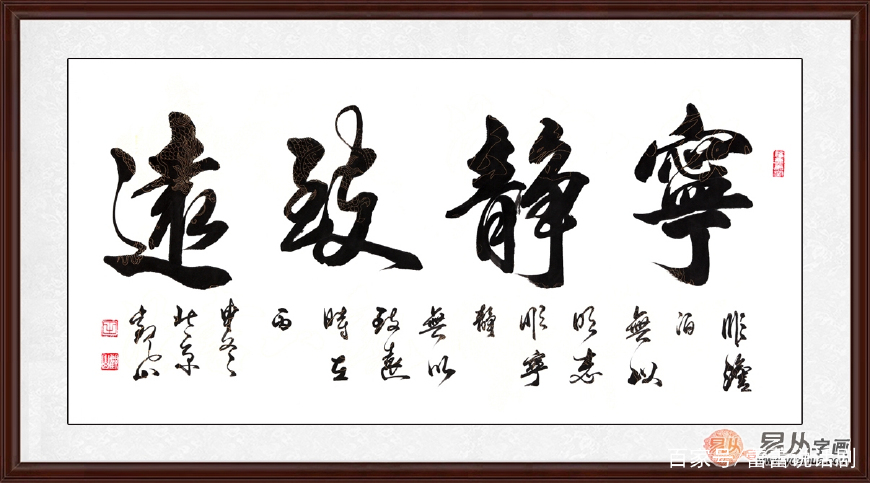 寧靜致遠
非澹
泊
無以
明志
非寧
靜
無以
致遠
時在
丙
申冬
北京
易从字画
百家号/